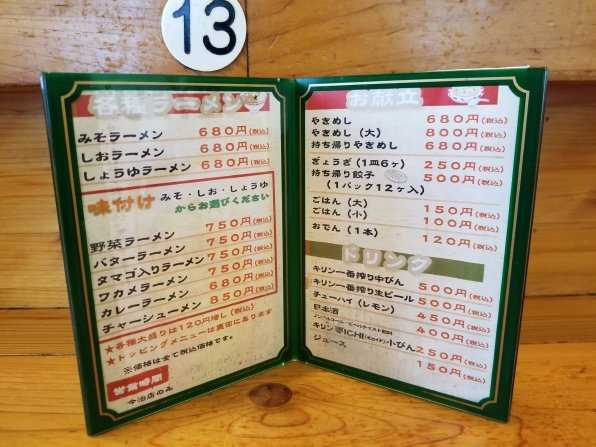 13
各種ラーメン
みそラーメン 680円(税込)
しおラーメン 680円(税込)
しょうゆラーメン 680円(税込)
味付け みそ・しお・しょうゆ
からお選びください
野菜ラーメン 750円(税込)
バターラーメン 750円(税込)
タマゴ入りラーメン 750円(税込)
ワカメラーメン 750円(税込)
カレーラーメン 680円(税込)
チャーシューメン 850円(税込)
★各種大盛りは120円増し(税込)
★トッピングメニューは裏面にあります
※価格は全て税込価格です。
営業時間
今治店のみ
お献立
やきめし 680円(税込)
やきめし(大) 800円(税込)
持ち帰りやきめし 680円(税込)
ぎょうざ(1皿6ヶ) 250円(税込)
持ち帰り餃子 500円(税込)
(1パック12ヶ入)
ごはん(大) 150円(税込)
ごはん(小) 100円(税込)
おでん(1本) 120円(税込)
ドリンク
キリン一番搾り中びん 500円(税込)
キリン一番搾り生ビール 500円(税込)
チューハイ(レモン) 450円(税込)
日本酒 400円(税込)
キリン零ICHI(ゼロイチ)小びん 250円(税込)
ジュース 150円(税込)